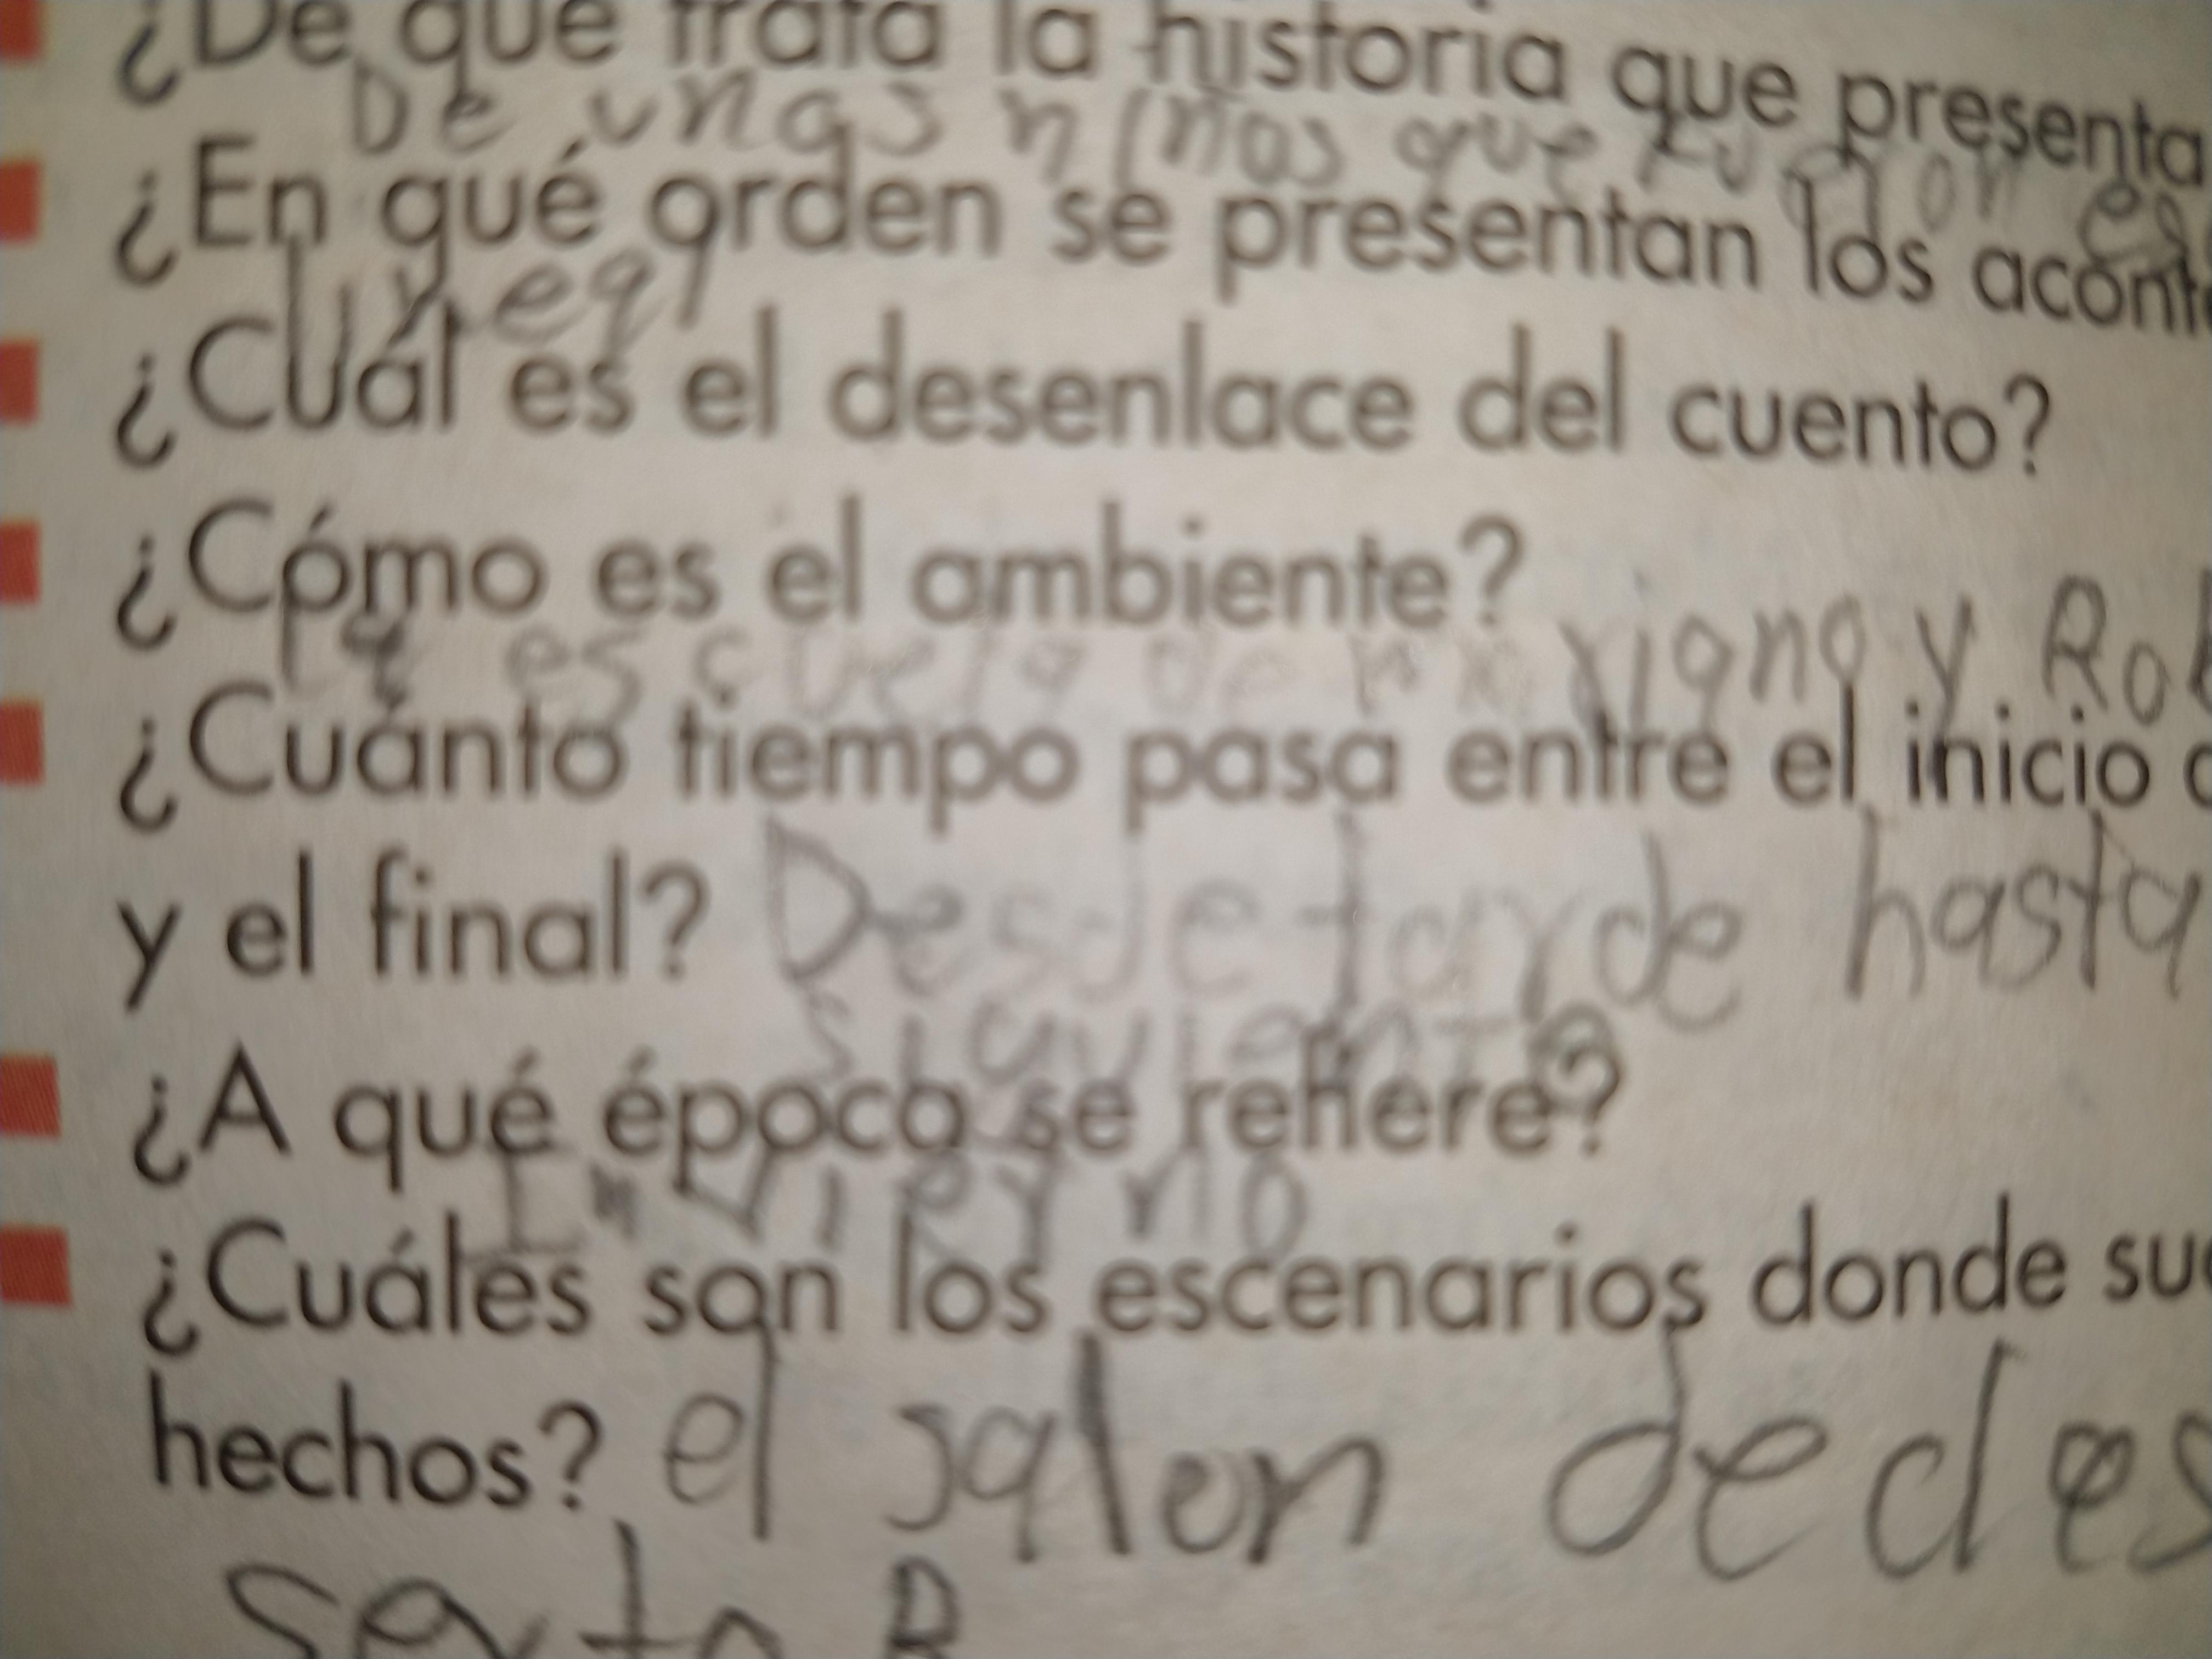 ¿De qué trata la historia que presenta
De unas niños que
¿En qué orden se presentan los
Lineal
¿Cuál es el desenlace del cuento?
¿Cómo es el ambiente?
La escuela de Mariana y
¿Cuánto tiempo pasa entre el inicio
y el final? Desde tarde hasta
siguiente
¿A qué época se refiere?
Invierno
¿Cuáles son los escenarios donde
hechos? el salon de
sexto B